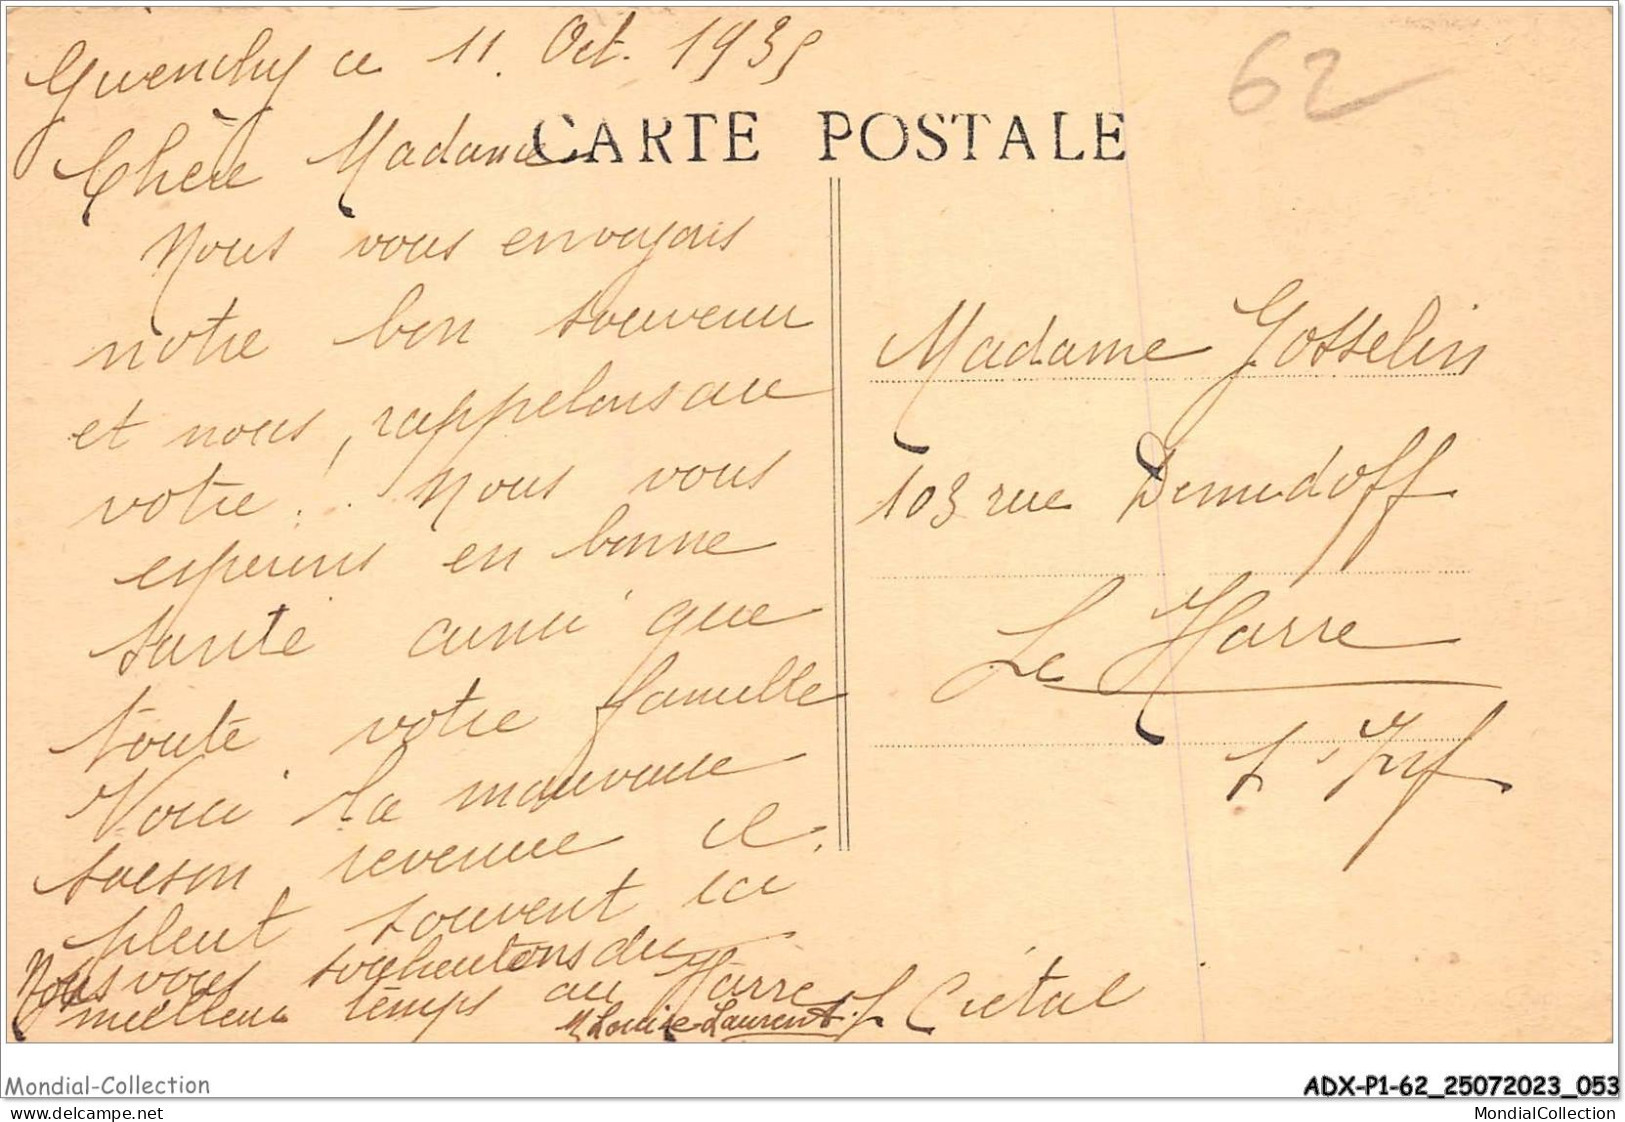 Givenchy ce 11. Oct. 1935
62
CARTE POSTALE
Chère Madame
Nous vous envoyons
notre bon souvenir
et nous, rappelons au
votre!. Nous vous
esperons en bonne
santé ainsi que
toute votre famille
Voici la mauvaise
saison revenue il
pleut souvent ici
Nous vous souhaitons du
meilleur temps au Havre
M Louise Laurent.
Madame Gosselin
103 rue Demidoff
Le Havre
S. Inf
Mondial-Collection
ADX-P1-62_25072023_053
MondialCollection